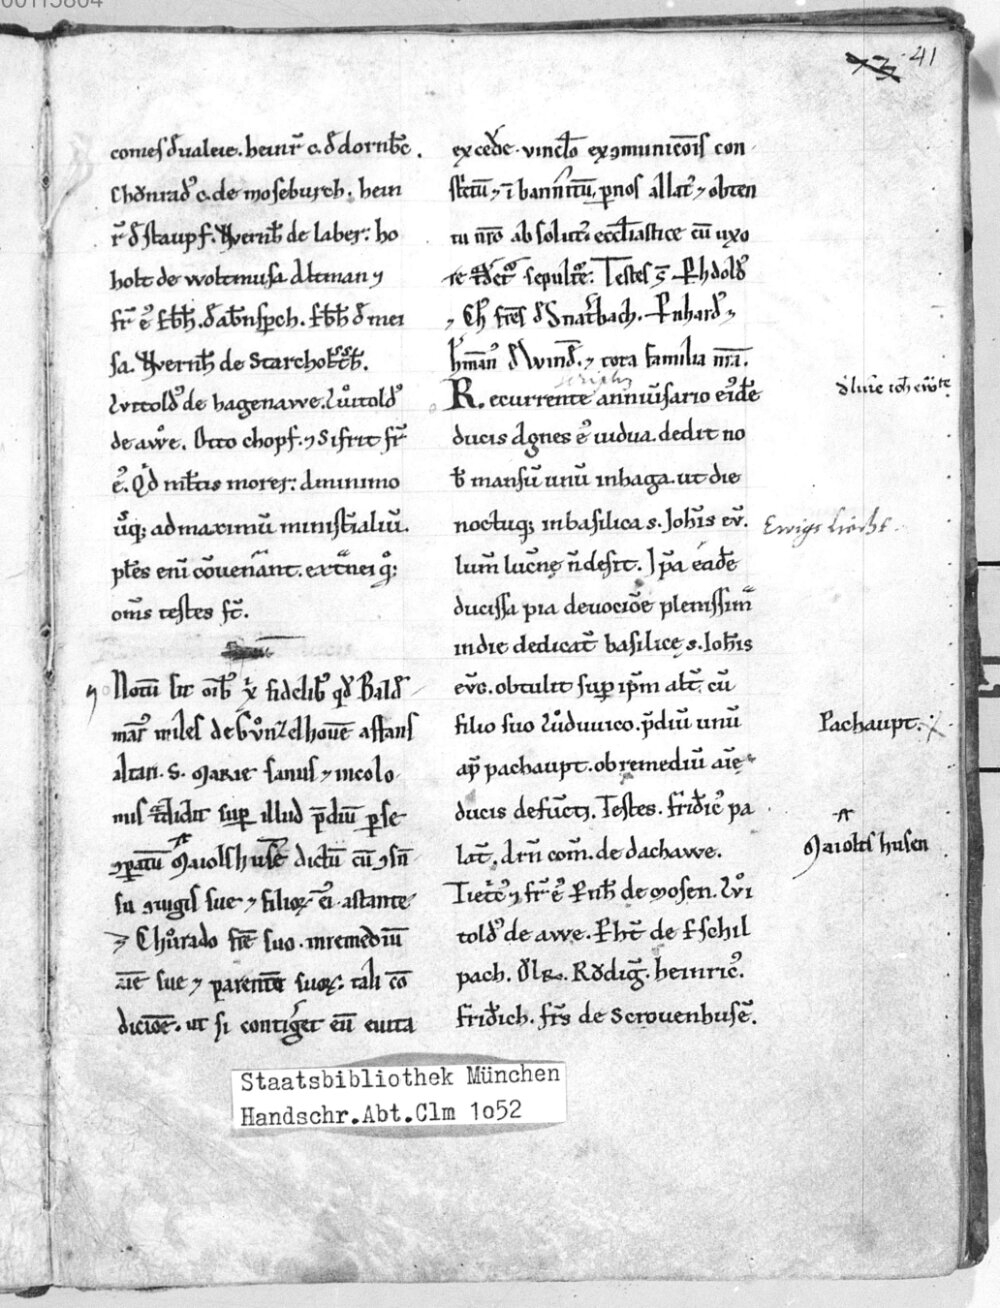 41
comes d̄ ualeie. heinr̄ c. d̄ dornb̄c.
Chůnrad' c. de moseburch. hein
r̄ d̄ staupf. Wernh̄ de laber: ho
holt de wolemusa altman ⁊
fr̄ ē
sa. Wernh̄ de
Lvitold' de hagenawe. Lůitold'
de awe. Otto chopf. ⁊ Sifrit fr̄
ē. Q'd mł̄tis mores: a minimo
usq; ad maximū ministˉaliū.
ptēs eni cōuenˉant. extˉnei q°:
om̄s testes sˉt.
Notū sit oīb' xp̄i fidelib' q'd Bald
mar' miles de Gůnzelhouē astans
altari. S. Marie sanus ⁊ incolo
mis sup illud p̄diū p se
Maiolshusē dictū cū
su iugis sue ⁊ filior̄ ei astante
⁊ Chůrado fr̄e suo. in remediū
aīe sue ⁊ parentū suor̄. tali cō
dicioē. ut si contiḡet eū euita
excede. vinclo excōmunicōis con
st'ctū ⁊ ī bannitū. p nos allat' ⁊ obten
tu nr̄o absolut'. eccl̄iastice cū uxo
re sepult'e. Testes s̄ P̄hdold'
⁊ Ch̄ fr̄es d̄ Snaitbach. P̄nhard' ⁊
h̄man' d̄ Wind̄. ⁊ tota familia nr̄a.
Recurrente anniūsario eidē
ducis Agnes ē uidua. dedit no
b̄ mansū unū in haga. ut die
noctuq; in basilica s. Joh̄is ev̄.
lum̄ lucˉne n̄ desit. Ip̄a eadē
ducissa pia deuociōe plenissimˉ
in die dedicat̄ basilicę s. Ioh̄is
ev̄. obtulit sup ip̄m alt̄. cū
filio suo Lůduuico. p̄diū unū
ap̄ pachaupt. ob remediū aīę
ducis defūcti. Testes. fridˉic' pa
lat̄. Arn̄ com̄. de dachawe.
de mosen. Lvi
told' de awe. de Eschil
pach. Růdiḡ. heinric'.
fridˉich. fr̄s de Scrouenhusē.
Ewigs liecht.
Pachaupt.
Maiolts husen
Staatsbibliothek München
Handschr.Abt.Clm 1o52